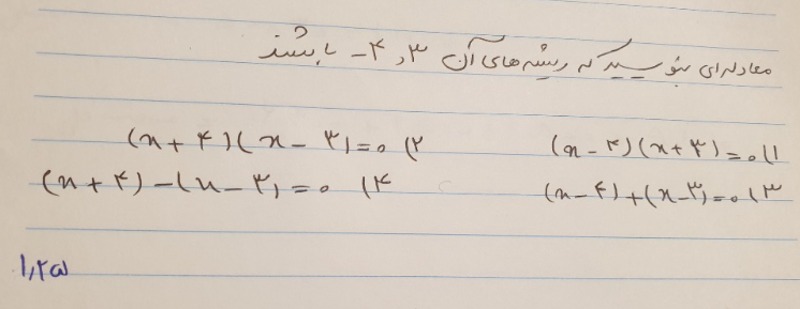 معادله‌ای بنویسید که ریشه‌های آن ۳ و ۴- باشند
۱) (x - ۴)(x + ۳) = ۰
۲) (x + ۴)(x - ۳) = ۰
۳) (x - ۴) + (x - ۳) = ۰
۴) (x + ۴) - (x - ۳) = ۰
۱,۲۵